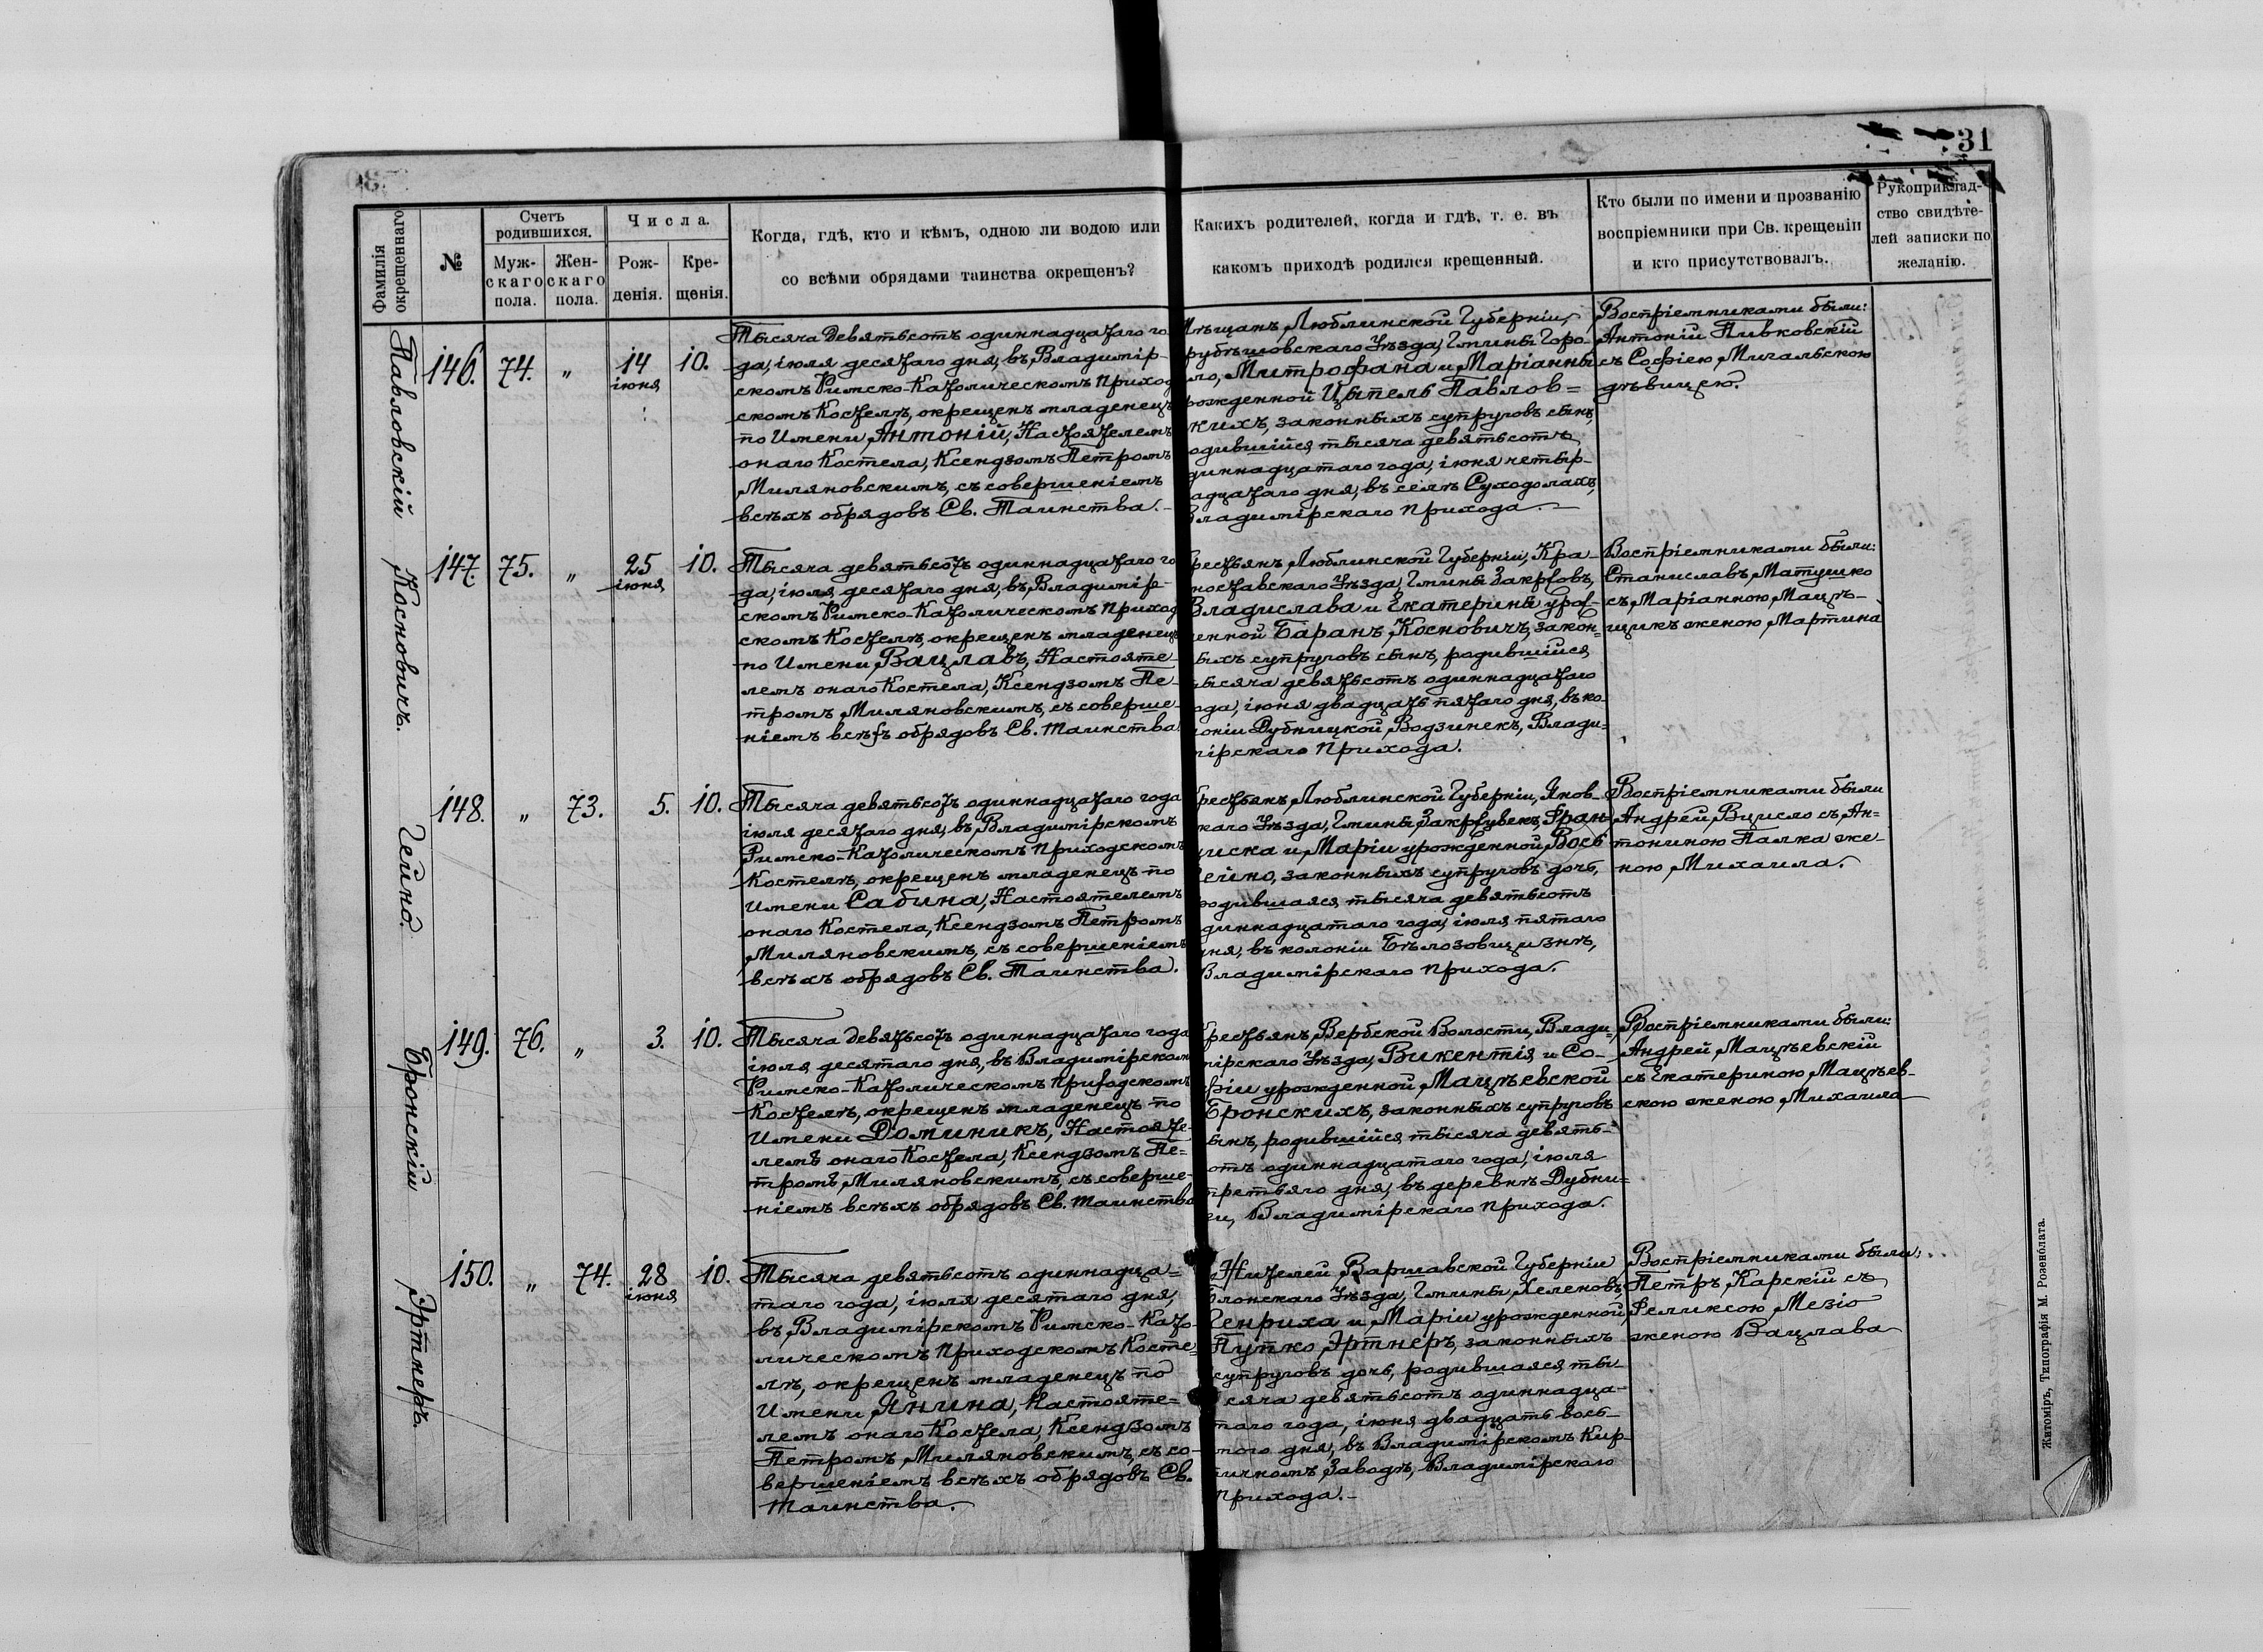 31
Фамилія окрещеннаго
№
Счетъ родившихся.
Мужскаго пола.
Женскаго пола.
Числа.
Рожденія.
Крещенія.
Когда, гдѣ, кто и кѣмъ, одною ли водою или
со всѣми обрядами таинства окрещенъ?
Какихъ родителей, когда и гдѣ, т. е. въ
какомъ приходѣ родился крещенный.
Кто были по имени и прозванію
воспріемники при Св. крещеніи
и кто присутствовалъ.
Рукоприклад-
ство свидѣте-
лей записки по
желанію.
Павловскій
146. 74. „ 14 іюня 10.
Тысяча девятьсотъ одиннадцатаго го-
да, іюля десятаго дня, въ Владимір-
скомъ Римско-Католическомъ приход
скомъ Костелѣ, окрещенъ младенецъ
по Имени Антоній, Настоятелемъ
онаго Костела, Ксендзомъ Петромъ
Миляновскимъ, съ совершеніемъ
всѣхъ обрядовъ Св. Таинства.
Мѣщанъ, Люблинской Губерніи,
рубѣшовскаго Уѣзда, Гмины Горо-
ло, Митрофана и Маріанны
рожденной Цытель Павлов=
кихъ, законныхъ супруговъ сынъ,
одившійся тысяча девятьсотъ
диннадцатаго года, іюня четыр-
адцатаго дня, въ селѣ Суходолахъ,
Владимірскаго прихода.
Воспріемниками были:
Антоній Пивковскій
съ Софіею Михальскою
дѣвицею.
Косновичъ.
147. 75. „ 25 іюня 10.
Тысяча девятьсотъ одиннадцатаго го
да, іюля десятаго дня, въ Владимір-
скомъ Римско-Католическомъ приход
скомъ Костелѣ, окрещенъ младенецъ
по Имени Вацлавъ, Настояте-
лемъ онаго Костела, Ксендзомъ Пе-
тромъ Миляновскимъ, съ соверше-
ніемъ всѣхъ обрядовъ Св. таинства
рестьянъ, Люблинской Губерніи, Кра-
ноставскаго Уѣзда, Гмины Закржовъ,
Владислава и Екатерины урож-
енной Баранъ, Косновичъ, закон=
ыхъ супруговъ сынъ, родившійся
тысяча девятьсотъ одиннадцатаго
ода, іюня двадцать пятаго дня, въ ко-
лоніи Дубницкой Водзинекъ, Влади=
мірскаго прихода.
Воспріемниками были:
Станиславъ Матушко
съ Маріанною Мацѣ-
щикъ женою Мартина
Гейно.
148. „ 73. 5. 10.
Тысяча девятьсотъ одиннадцатаго года
іюля десятаго дня, въ Владимірскомъ
Римско-Католическомъ приходскомъ
Костелѣ, окрещенъ младенецъ по
имени Сабина, Настоятелемъ
онаго Костела, Ксендзомъ Петромъ
Миляновскимъ, съ совершеніемъ
всѣхъ обрядовъ Св. Таинства.
рестьянъ Люблинской Губерніи, Янов-
скаго Уѣзда, Гмины Закржувекъ, Фран
циска и Маріи урожденной Вось
ейно, законныхъ супруговъ дочь,
родившаяся тысяча девятьсотъ
диннадцатаго года, іюля пятаго
дня, въ колоніи Бѣлозовщизнѣ,
Владимірскаго прихода.
Воспріемниками были
Андрей Вцисло съ Ан=
тониною Палка же-
ною Михаила.
Бронскій
149. 76. „ 3. 10.
Тысяча девятьсотъ одиннадцатаго года
іюля десятаго дня, въ Владимірском
Римско-Католическомъ приходскомъ
Костелѣ, окрещенъ младенецъ по
имени Доминикъ, Настояте-
лемъ онаго Костела, Ксендзомъ Пе=
тромъ Миляновскимъ, съ соверше-
ніемъ всѣхъ обрядовъ Св. таинства
рестьянъ, Вербской Волости, Влади-
мірскаго Уѣзда, Викентія и Со-
фіи урожденной Мацѣевской
Бронскихъ, законныхъ супруговъ
сынъ, родившійся тысяча девять-
отъ одиннадцатаго года, іюля
третьяго дня, въ деревнѣ Дубни=
ки, Владимірскаго прихода.
Воспріемниками были:
Андрей Мацѣевскій
съ Екатериною Мацѣев-
скою женою Михаила
Эртнеръ.
150. „ 74. 28 іюня 10.
Тысяча девятьсотъ одиннадца=
таго года, іюля десятаго дня,
въ Владимірскомъ Римско-Като-
лическомъ приходскомъ Косте=
лѣ, окрещенъ младенецъ по
Имени Янина, Настояте=
лемъ онаго Костела, Ксендзомъ
Петромъ Миляновскимъ, съ со-
вершеніемъ всѣхъ обрядовъ Св.
таинства.
Жителей Варшавской Губерніи
Блонскаго Уѣзда, Гмины Хеленовъ,
Генриха и Маріи урожденной
Пупко Эртнеръ, законныхъ
супруговъ дочь, родившаяся ты-
сяча девятьсотъ одиннадца-
таго года, іюня двадцать вось-
мого дня, въ Владимірскомъ Кир-
пичномъ Заводѣ, Владимірскаго
прихода.
Воспріемниками были:
Петръ Карскій съ
Феликсою Мезіо
женою Вацлава
Житоміръ, Типографія М. Розенблата.